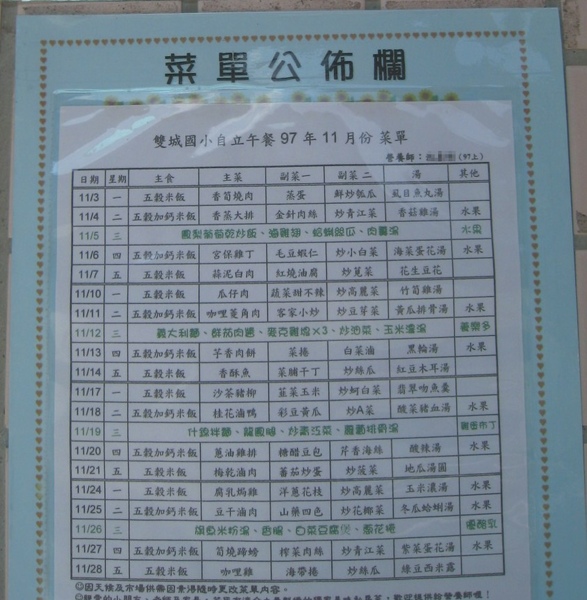 菜單公佈欄
雙城國小自立午餐 97 年 11 月份 菜單
營養師： (97上)
日期 星期 主食 主菜 副菜一 副菜二 湯 其他
11/3 一 五穀米飯 香筍燒肉 蒸蛋 鮮炒瓠瓜 虱目魚丸湯
11/4 二 五穀加鈣米飯 香蒸大排 金針肉絲 炒青江菜 香菇雞湯 水果
11/5 三 鳳梨葡萄乾炒飯、滷雞翅、蛤蜊絲瓜、肉羹湯 水果
11/6 四 五穀加鈣米飯 宮保雞丁 毛豆蝦仁 炒小白菜 海菜蛋花湯 水果
11/7 五 五穀米飯 蒜泥白肉 紅燒油腐 炒莧菜 花生豆花
11/10 一 五穀米飯 瓜仔肉 蔬菜甜不辣 炒高麗菜 竹筍雞湯
11/11 二 五穀加鈣米飯 咖哩菱角肉 客家小炒 炒豆芽菜 黃瓜排骨湯 水果
11/12 三 義大利麵、鮮茄肉醬、麥克雞塊×3、炒油菜、玉米濃湯 養樂多
11/13 四 五穀加鈣米飯 芋香肉餅 菜捲 白菜滷 黑輪湯 水果
11/14 五 五穀米飯 香酥魚 菜脯干丁 炒絲瓜 紅豆木耳湯
11/17 一 五穀米飯 沙茶豬柳 韮菜玉米 炒蚵白菜 翡翠吻魚羹
11/18 二 五穀加鈣米飯 桂花滷鴨 彩豆黃瓜 炒A菜 酸菜豬血湯 水果
11/19 三 什錦拌麵、龍鳳腿、炒青江菜、 湯 雞蛋布丁
11/20 四 五穀加鈣米飯 蔥油雞排 糖醋豆包 芹香海絲 酸辣湯 水果
11/21 五 五穀米飯 梅乾滷肉 蕃茄炒蛋 炒菠菜 地瓜湯圓
11/24 一 五穀米飯 腐乳焗雞 洋蔥花枝 炒高麗菜 玉米濃湯 水果
11/25 二 五穀加鈣米飯 豆干滷肉 山藥四色 炒花椰菜 冬瓜蛤蜊湯 水果
11/26 三 米粉湯、香腸、白菜豆腐煲、 優酪乳
11/27 四 五穀加鈣米飯 筍燒蹄膀 榨菜肉絲 炒青江菜 紫菜蛋花湯 水果
11/28 五 五穀米飯 咖哩雞 海帶捲 炒絲瓜 綠豆西米露
◎因天候及市場供需因素得隨時更改菜單內容。